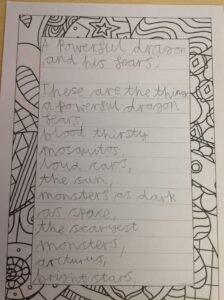 A Powerful dragon
and his fears!
These are the thing
a powerful dragon
fears,
blood thirsty
mosquitos,
loud cars,
the sun,
monsters as dark
as space,
the scaryest
monsters,
arcturus,
bright stars,